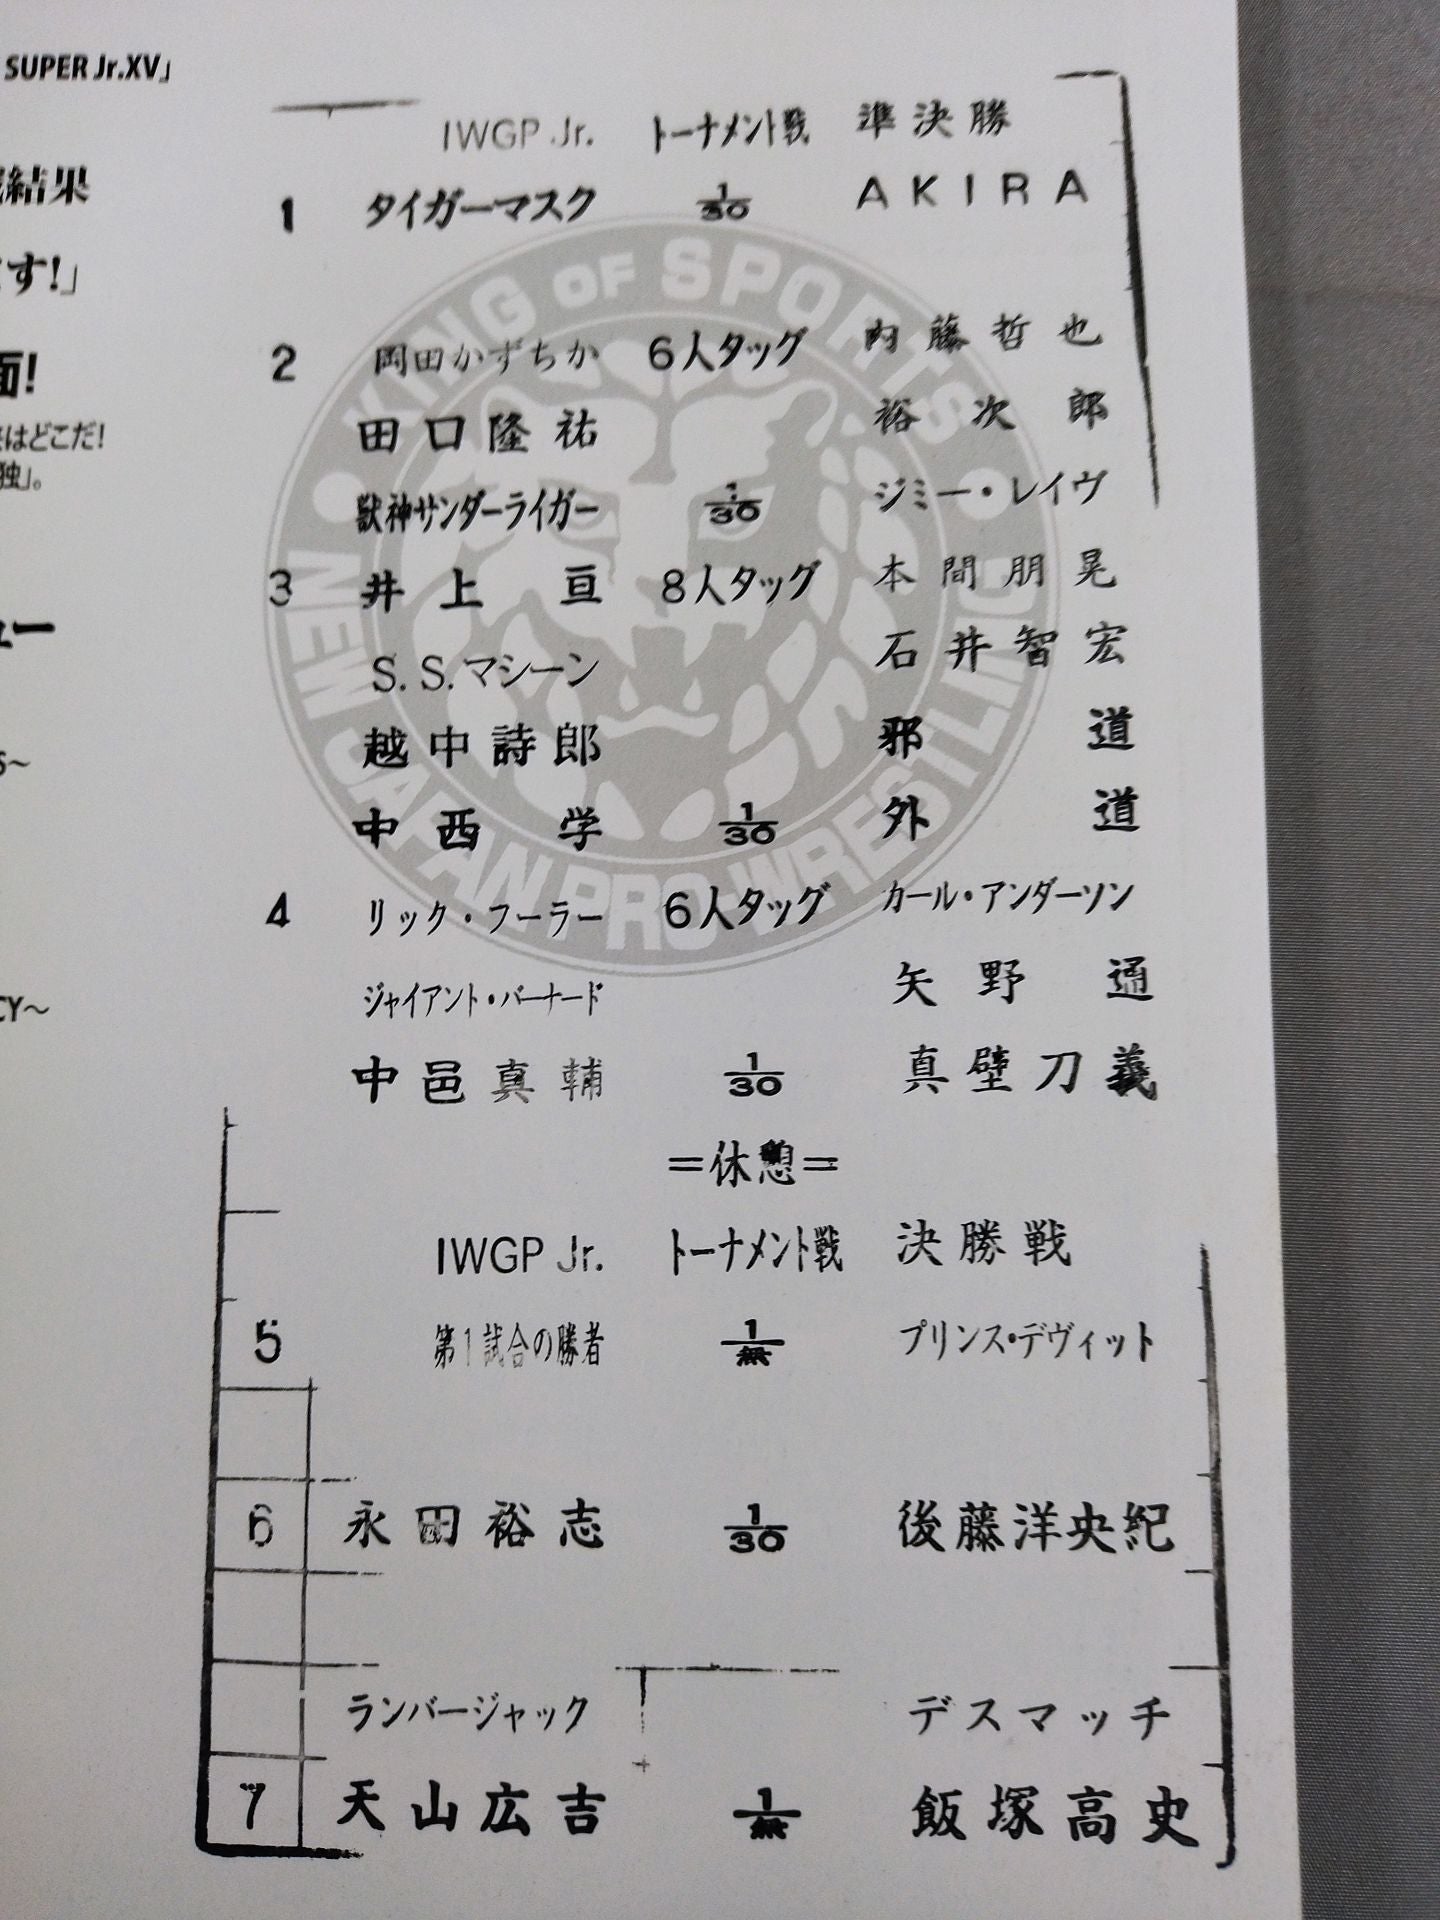 SUPER Jr.XV」
結果
す!」
面!
はどこだ!
独」。
ュー
CY〜
IWGP Jr. トーナメント戦 準決勝
1 タイガーマスク 1/30 AKIRA
2 岡田かずちか 6人タッグ 内藤哲也
田口隆祐 裕次郎
獣神サンダーライガー 1/30 ジミー・レイヴ
3 井上亘 8人タッグ 本間朋晃
S.S.マシーン 石井智宏
越中詩郎 邪道
中西学 1/30 外道
4 リック・フーラー 6人タッグ カール・アンダーソン
ジャイアント・バーナード 矢野通
中邑真輔 1/30 真壁刀義
=休憩=
IWGP Jr. トーナメント戦 決勝戦
5 第1試合の勝者 1/無 プリンス・デヴィット
6 永田裕志 1/30 後藤洋央紀
ランバージャック デスマッチ
7 天山広吉 1/無 飯塚高史
KING OF SPORTS
NEW JAPAN PRO-WRESTLING